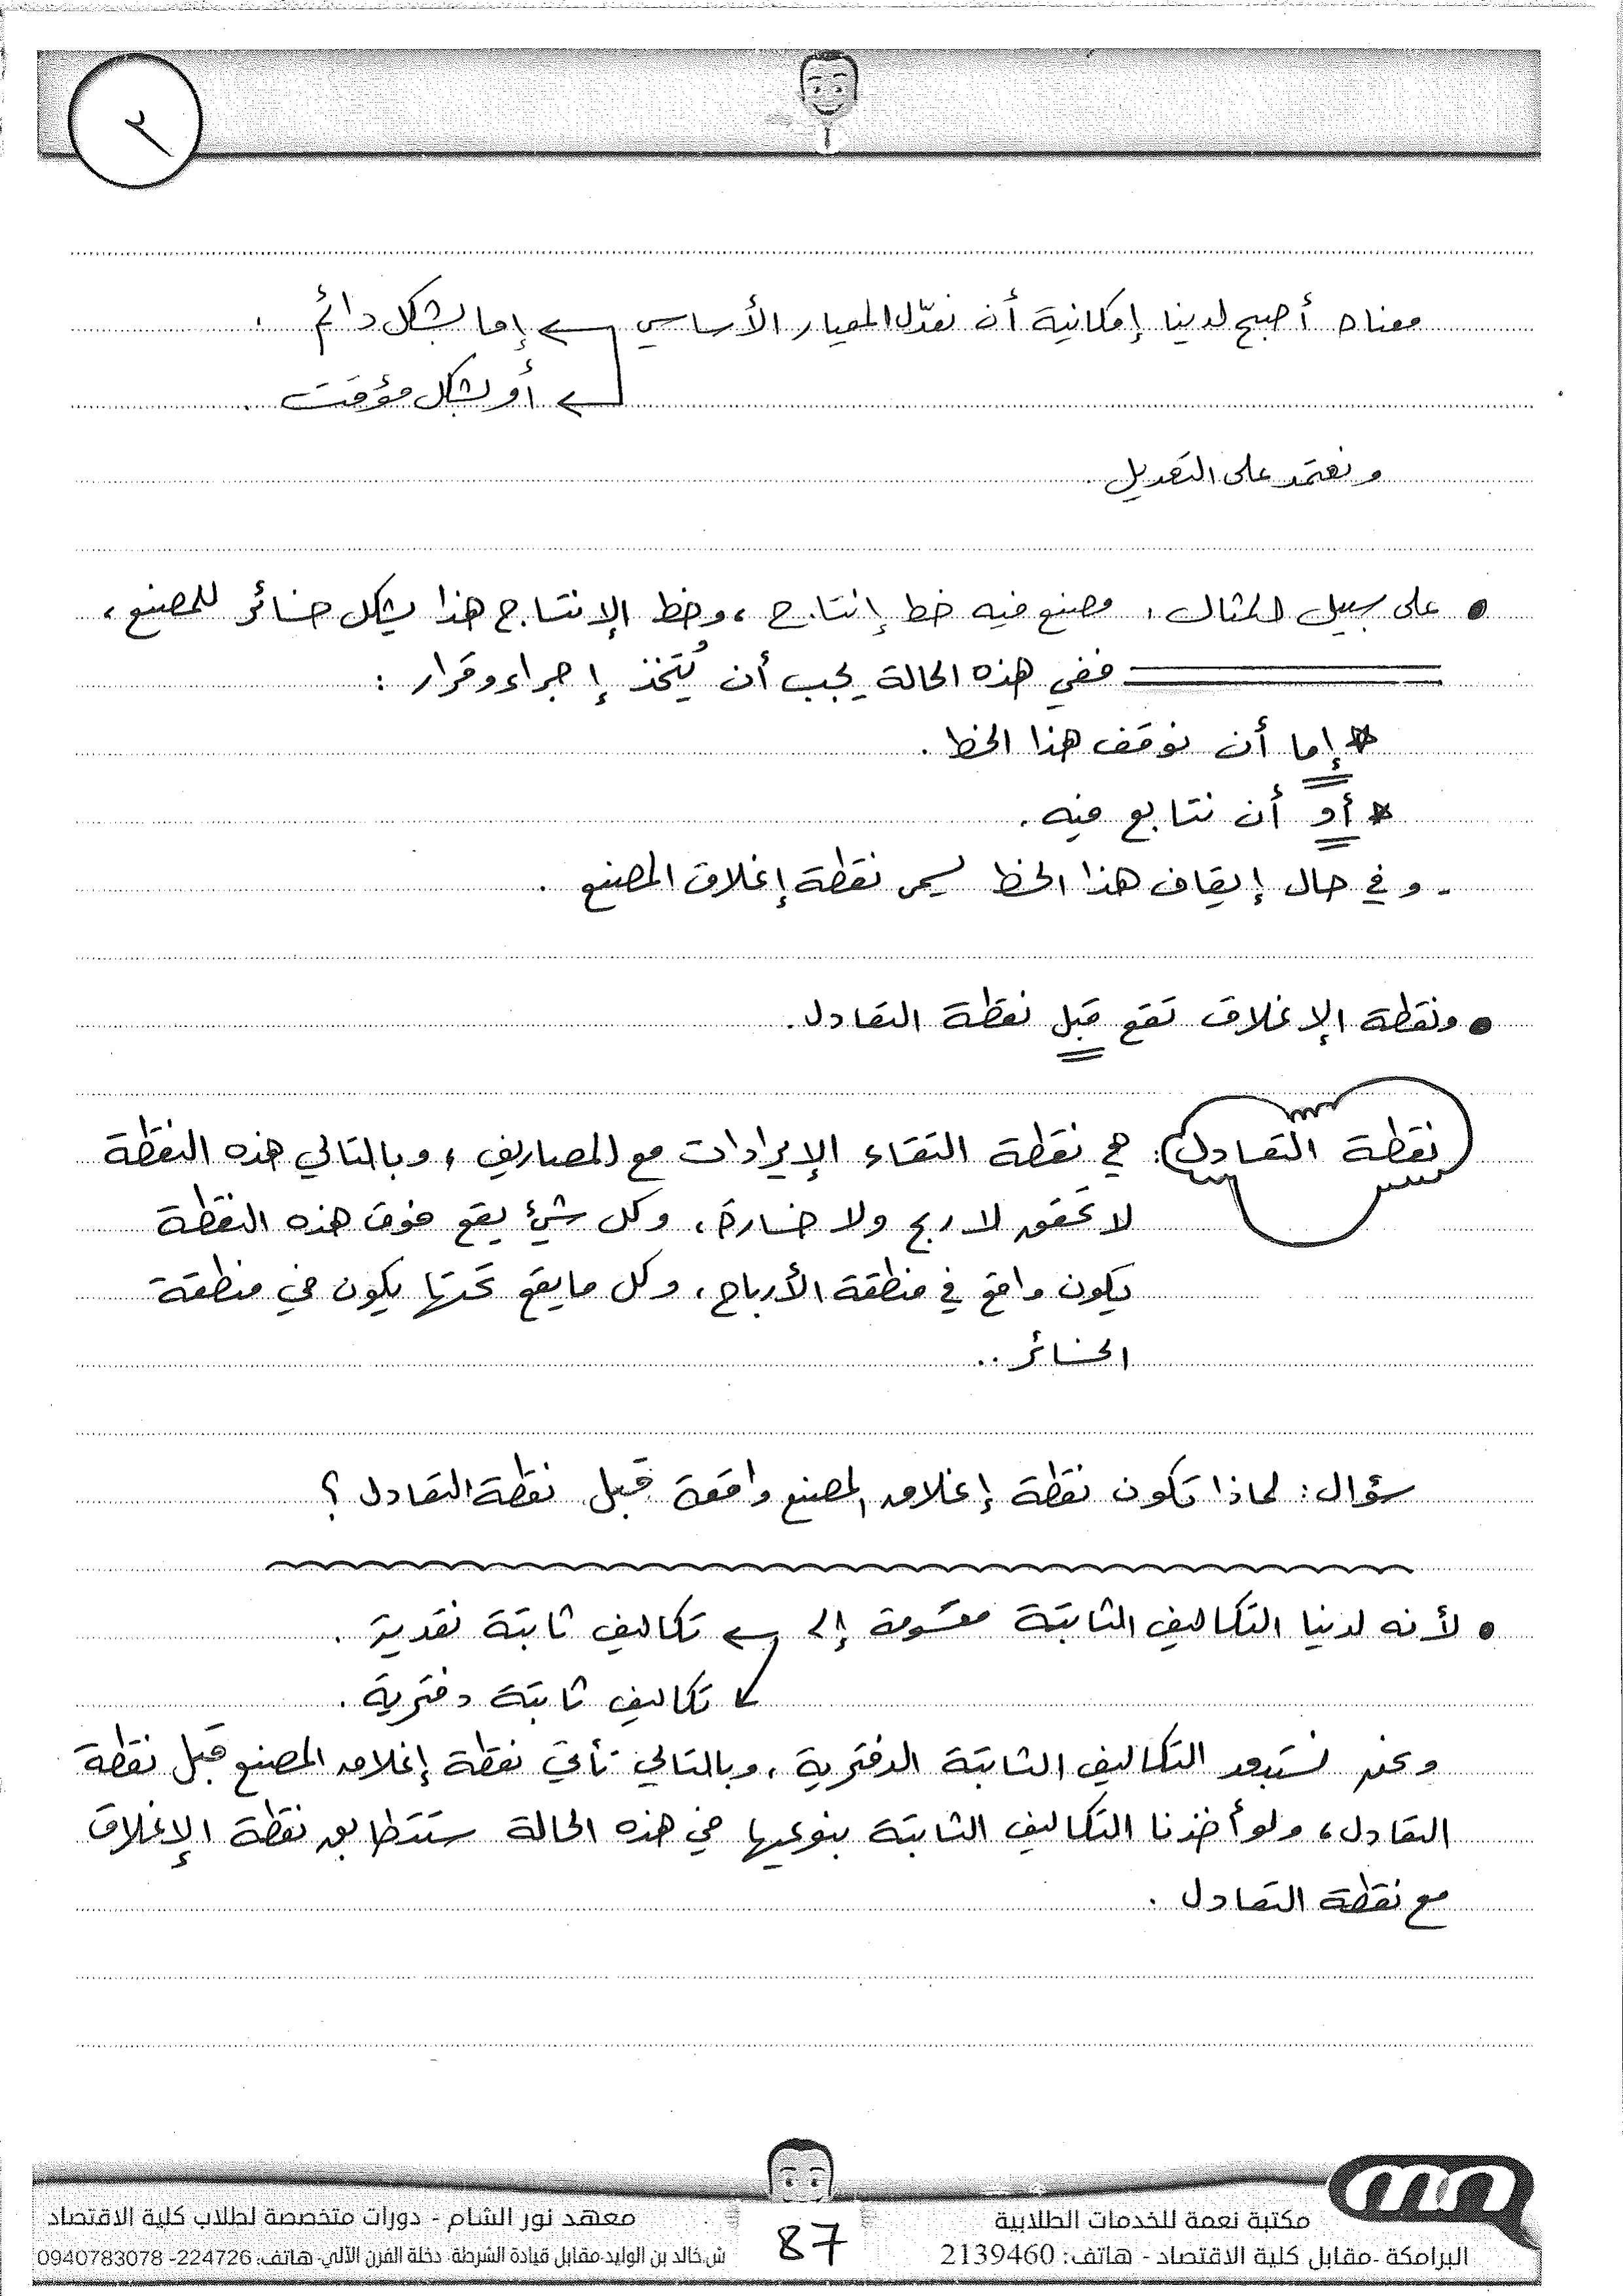 ٢
معناه أصبح لدينا إمكانية أن نعدّل المعيار الأساسي ← إما بشكل دائم .
← أو بشكل مؤقت .
ونعتمد على التعديل .
• على سبيل المثال : مصنع فيه خط إنتاج ، وخط الإنتاج هذا يشكل خسائر للمصنع ،
ففي هذه الحالة يجب أن يُتخذ إجراء وقرار :
* إما أن نوقف هذا الخط .
* أو أن نتابع فيه .
- وفي حال إيقاف هذا الخط يسمى نقطة إغلاق المصنع .
• ونقطة الإغلاق تقع قبل نقطة التعادل .
نقطة التعادل : هي نقطة التقاء الإيرادات مع المصاريف ، وبالتالي هذه النقطة
لا تحقق لا ربح ولا خسارة ، وكل شيء يقع فوق هذه النقطة
يكون واقع في منطقة الأرباح ، وكل ما يقع تحتها يكون في منطقة
الخسائر ..
سؤال : لماذا تكون نقطة إغلاق المصنع واقعة قبل نقطة التعادل ؟
• لأنه لدينا التكاليف الثابتة مقسومة إلى ← تكاليف ثابتة نقدية .
↙ تكاليف ثابتة دفترية .
ونحن نستبعد التكاليف الثابتة الدفترية ، وبالتالي تأتي نقطة إغلاق المصنع قبل نقطة
التعادل ، ولو أخذنا التكاليف الثابتة بنوعيها في هذه الحالة ستتطابق نقطة الإغلاق
مع نقطة التعادل .
مكتبة نعمة للخدمات الطلابية
البرامكة -مقابل كلية الاقتصاد - هاتف: 2139460
87
معهد نور الشام - دورات متخصصة لطلاب كلية الاقتصاد
ش.خالد بن الوليد-مقابل قيادة الشرطة- دخلة الفرن الآلي- هاتف: 224726- 0940783078